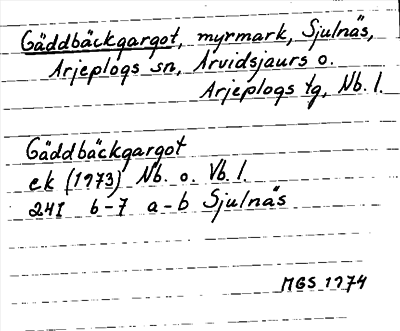 Gäddbäckgargot, myrmark, Sjulnäs,
Arjeplogs sn, Arvidsjaurs o.
Arjeplogs tg, Nb. l.
Gäddbäckgargot
ek (1973) Nb. o. Vb. l.
24I 6-7 a-b Sjulnäs
MGS 1974